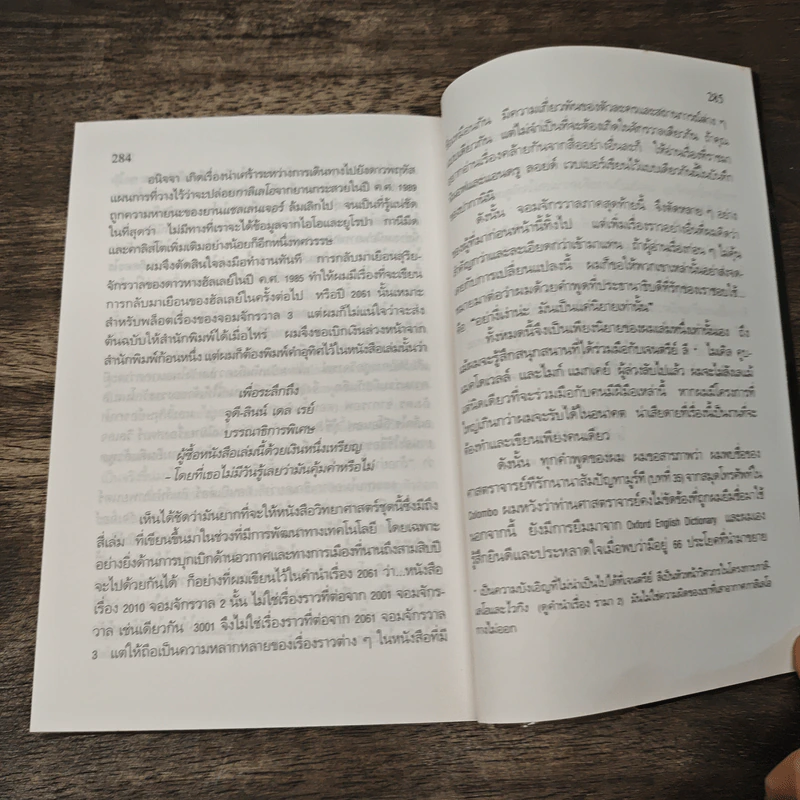 284
อนิจจา เกิดเรื่องน่าเศร้าระหว่างการเดินทางไปยังดาวพฤหัส
แผนการที่วางไว้ว่าจะปล่อยกาลิเลโอจากยานกระสวยในปี ค.ศ. 1989
ถูกความหายนะของยานแชลเลนเจอร์ ล้มเลิกไป จนเป็นที่รู้แน่ชัด
ในที่สุดว่า ไม่มีทางที่เราจะได้ข้อมูลจากไอโอและยูโรปา กานีมีด
และคาลิสโตเพิ่มเติมอย่างน้อยก็อีกหนึ่งทศวรรษ
ผมจึงตัดสินใจลงมือทำงานทันที การกลับมาเยือนสุริย-
จักรวาลของดาวหางฮัลเลย์ในปี ค.ศ. 1985 ทำให้ผมมีเรื่องที่จะเขียน
การกลับมาเยือนของฮัลเลย์ในครั้งต่อไป หรือปี 2061 นั้นเหมาะ
สำหรับพล็อตเรื่องของจอมจักรวาล 3 แต่ผมก็ไม่แน่ใจว่าจะส่ง
ต้นฉบับให้สำนักพิมพ์ได้เมื่อไหร่ ผมจึงขอเบิกเงินล่วงหน้าจาก
สำนักพิมพ์ก้อนหนึ่ง แต่ผมก็ต้องพิมพ์คำอุทิศไว้ในหนังสือเล่มนั้นว่า
เพื่อระลึกถึง
จูดี-ลินน์ เดล เรย์
บรรณาธิการพิเศษ
ผู้ซื้อหนังสือเล่มนี้ด้วยเงินหนึ่งเหรียญ
- โดยที่เธอไม่มีวันรู้เลยว่ามันคุ้มค่าหรือไม่
เห็นได้ชัดว่ามันยากที่จะให้หนังสือวิทยาศาสตร์ชุดนี้ซึ่งมีถึง
สี่เล่ม ที่เขียนขึ้นมาในช่วงที่มีการพัฒนาทางเทคโนโลยี โดยเฉพาะ
อย่างยิ่งด้านการบุกเบิกด้านอวกาศและทางการเมืองที่นานถึงสามสิบปี
จะไปด้วยกันได้ ก็อย่างที่ผมเขียนไว้ในคำนำเรื่อง 2061 ว่า...หนังสือ
เรื่อง 2010 จอมจักรวาล 2 นั้น ไม่ใช่เรื่องราวที่ต่อจาก 2001 จอมจักร-
วาล เช่นเดียวกัน 3001 จึงไม่ใช่เรื่องราวที่ต่อจาก 2061 จอมจักรวาล
3 แต่ให้ถือเป็นความหลากหลายของเรื่องราวต่าง ๆ ในหนังสือที่มี
285
เหมือนกัน มีความเกี่ยวพันของตัวละครและสถานการณ์ต่าง ๆ
แบบเดียวกัน แต่ไม่จำเป็นที่จะต้องเกิดในจักรวาลเดียวกัน ถ้าคุณ
อยากอ่านเรื่องคล้ายกันจากสื่ออย่างอื่นละก็ ให้อ่านเรื่องที่ราชมา
นินอฟและแอนดรู ลอยด์ เวบเบอร์เขียนไว้แบบเดียวกันนี้ในบันทึก
ของปากานินี
ดังนั้น จอมจักรวาลภาคสุดท้ายนี้ จึงตัดหลาย ๆ อย่าง
ของผู้ที่มาก่อนหน้านี้ทิ้งไป แต่เพิ่มเรื่องราวอย่างอื่นที่ผมคิดว่า
สำคัญกว่าและละเอียดกว่าเข้ามาแทน ถ้าผู้อ่านเรื่องก่อน ๆ ไม่คุ้น
เคยกับการเปลี่ยนแปลงนี้ ผมก็ขอให้พวกเขาเหล่านั้นอย่าส่งจด-
หมายมาต่อว่าผมด้วยคำพูดที่ประธานาธิบดีที่รักของเราชอบใช้...
คือ "อย่างี่เง่าน่ะ มันเป็นแค่นิยายเท่านั้น"
ทั้งหมดนี้จึงเป็นเพียงนิยายของผมเล่มหนึ่งเท่านั้นเอง ถึง
แม้ผมจะรู้สึกสนุกสนานที่ได้ร่วมมือกับเจนตรีย์ ลี * ไมเคิล คูบ-
แมคโดเวลล์ และไมก์ แมกเคย์ ผู้ล่วงลับไปแล้ว ผมจะไม่ลังเลแม้
แต่นิดเดียวที่จะร่วมมือกับคนมีฝีมือเหล่านี้ หากผมมีโครงการที่
ใหญ่เกินกว่าผมจะรับได้ในอนาคต น่าเสียดายที่เรื่องนี้เป็นเกมที่จะ
ต้องทำและเขียนเพียงคนเดียว
ดังนั้น ทุกคำพูดของผม ผมขอสารภาพว่า ผมพบชื่อของ
ศาสตราจารย์ที่รักนานาสัมปัญฑามูร์ที (บทที่ 35) จากสมุดโทรศัพท์ใน
Colombo ผมหวังว่าท่านศาสตราจารย์คงไม่ขัดข้องที่ถูกผมยืมชื่อมาใช้
นอกจากนี้ ยังมีการยืมมาจาก Oxford English Dictionary และผมเอง
รู้สึกยินดีและประหลาดใจเมื่อพบว่ามีอยู่ 66 ประโยคที่นำมาขยาย
* เป็นความบังเอิญที่ไม่น่าเป็นไปได้ที่เจนตรีย์ ลีเป็นหัวหน้าวิศวกรในโครงการกาลิ
เลโอและไวกิง (ดูคำนำเรื่อง รามา 2) มันไม่ใช่ความผิดของเขาที่เสาอากาศกาลิเลโอ
กางไม่ออก